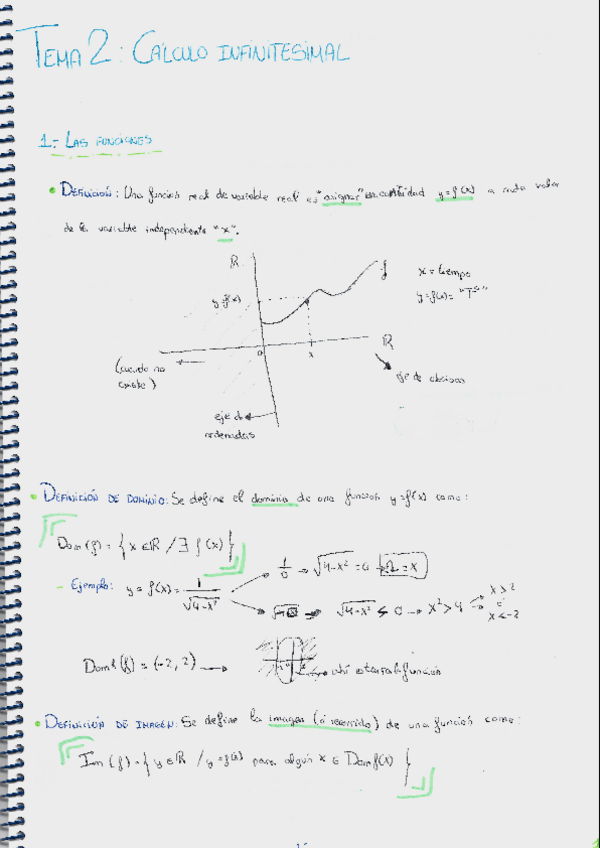 TEMA 2: CÁLCULO INFINITESIMAL
1.- LAS FUNCIONES
DEFINICIÓN: Una función real de variable real es "asignar" una cantidad y=f(x) a cada valor
de la variable independiente "x".
R
f
x = tiempo
y=f(x)
y=f(x)= "Tª"
R
0
x
(cuando no
existe)
eje de abcisas
eje de
ordenadas
DEFINICIÓN DE DOMINIO: Se define el dominio de una función y=f(x) como:
Dom(f) = { x ∈ R / ∃ f(x) }
1/0 → √4-x² = 0
= x
- Ejemplo: y = f(x) = 1/√4-x²
→ x² > 4 → x > 2
ó
x < -2
Dom(f) = (-2, 2) →
ahí estará la función
DEFINICIÓN DE IMAGEN: Se define la imagen (o recorrido) de una función como:
Im (f) = { y ∈ R / y = f(x) para algún x ∈ Dom f(x) }